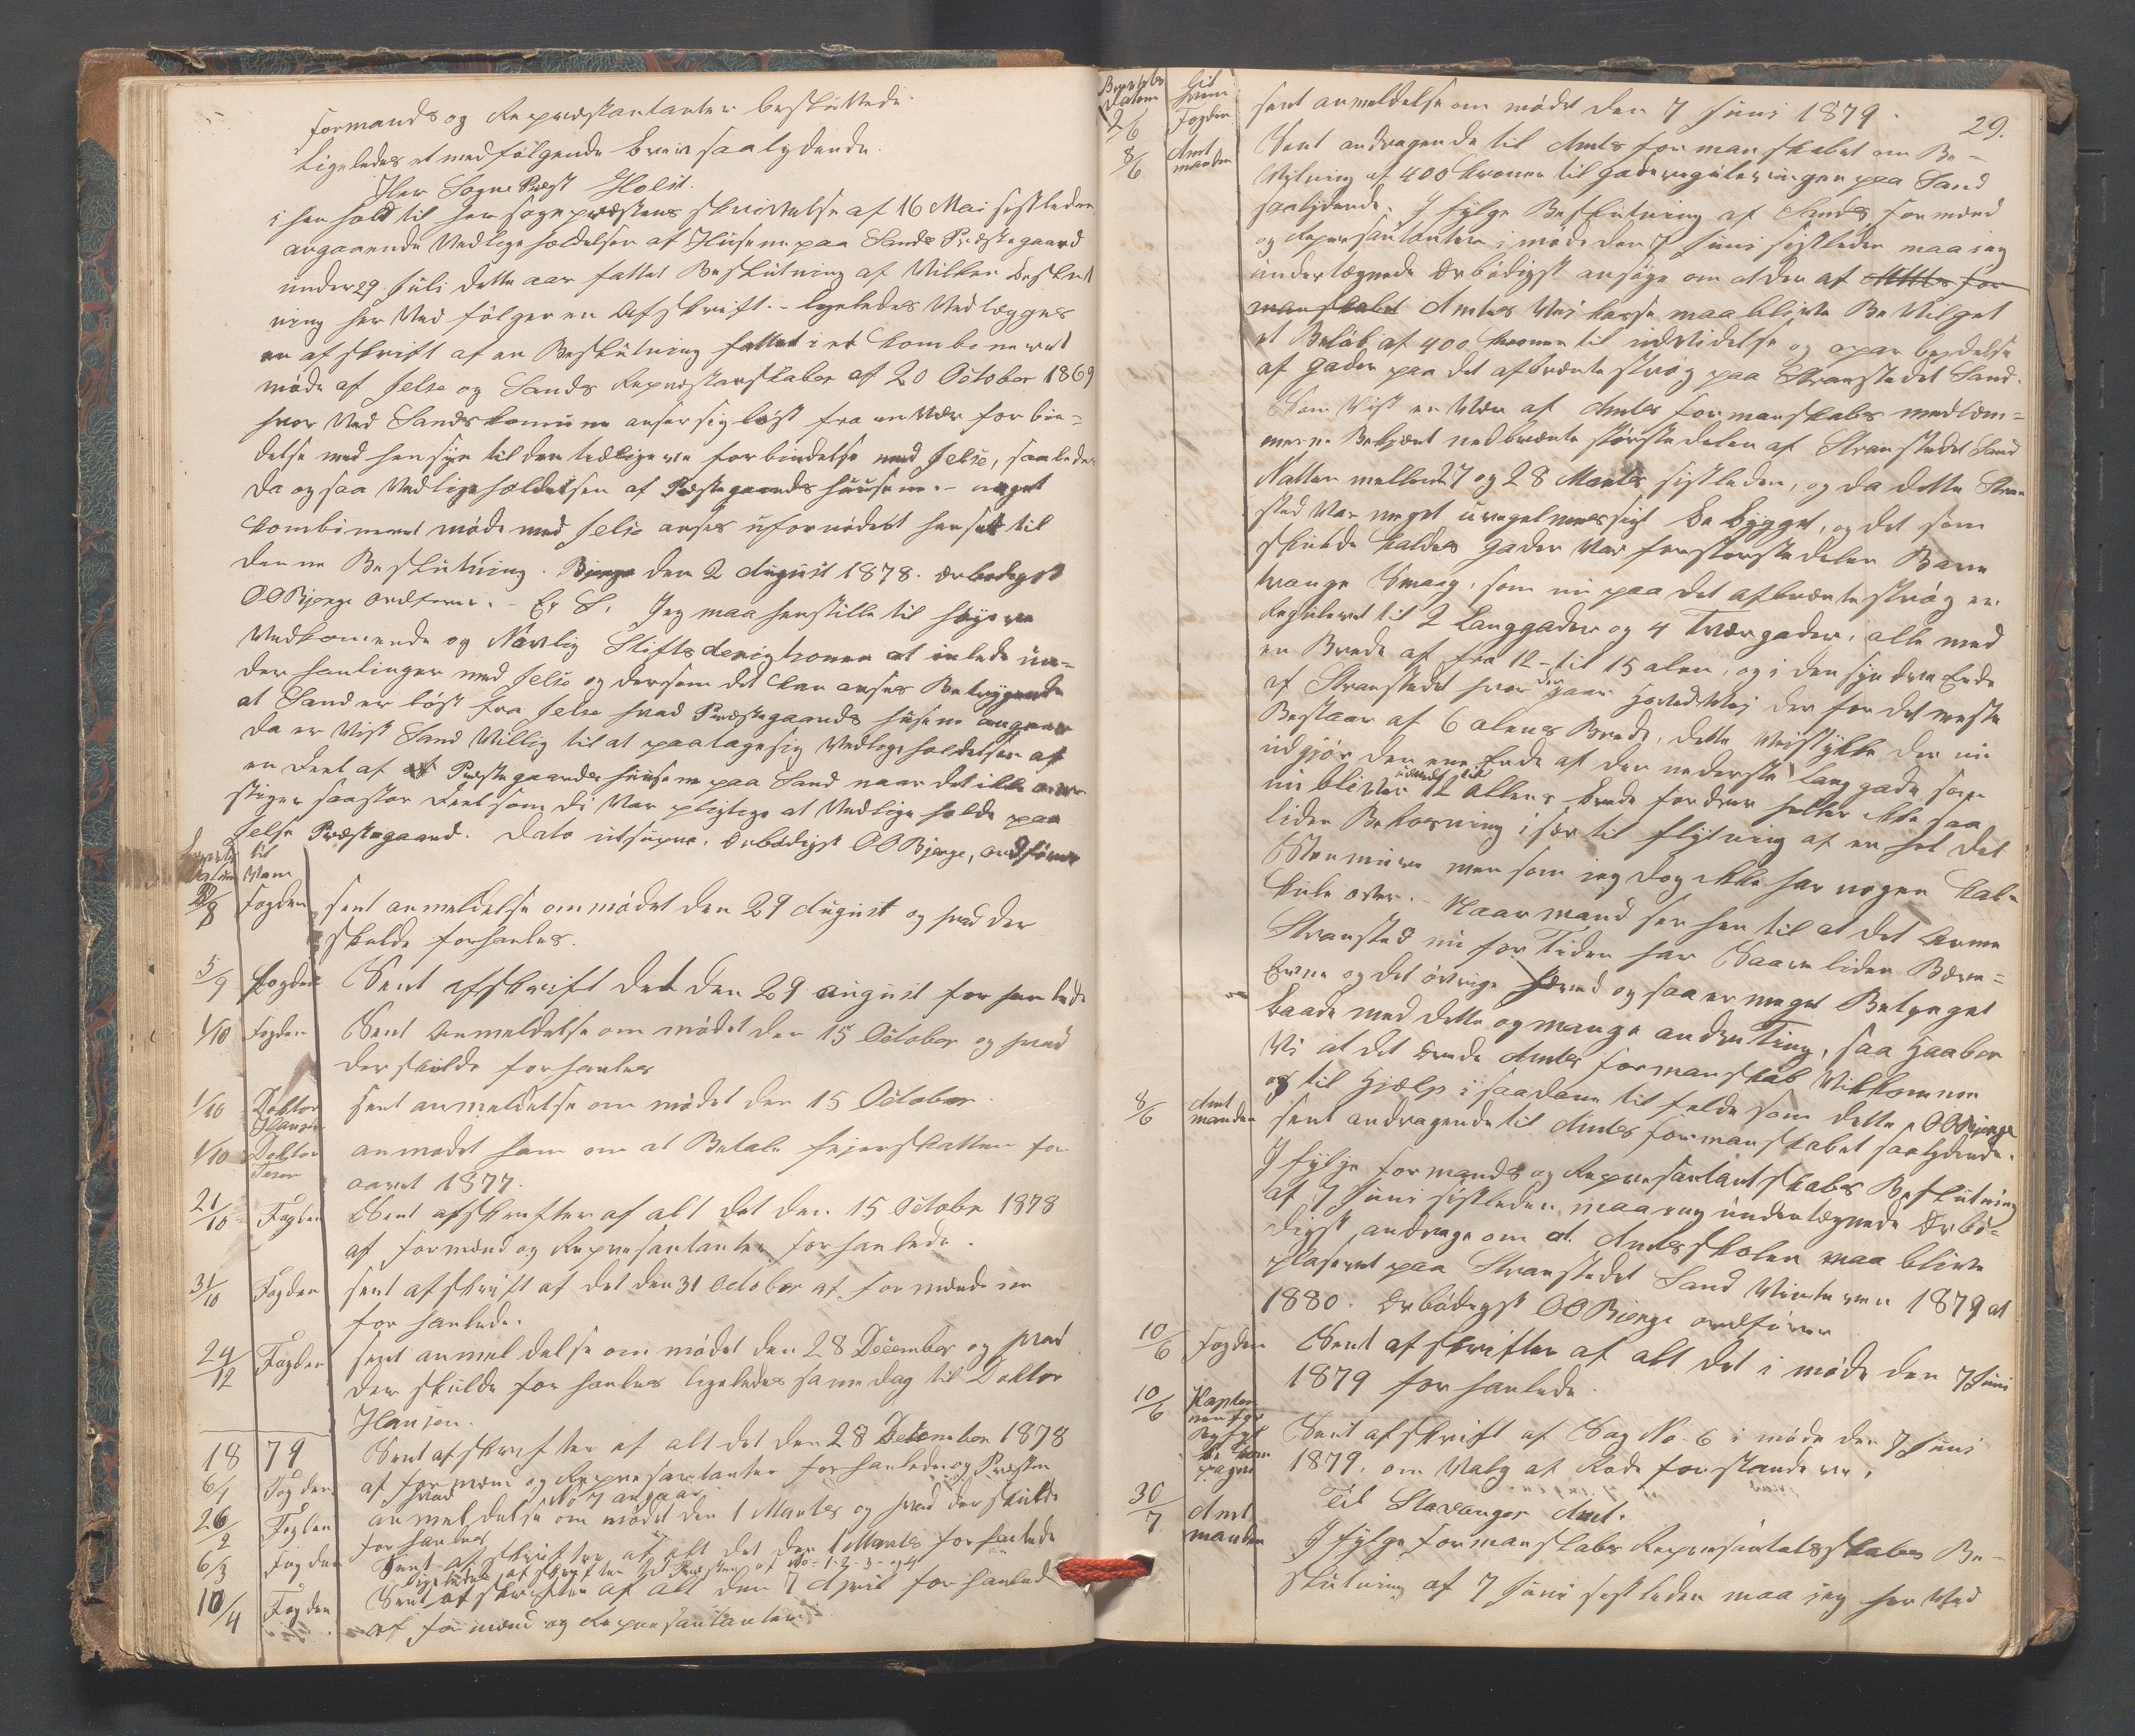 formands og Repræstantanter besluttede
Ligeledes et medfølgende brev saalydende.
Her SognePræst Holst.
i henhold til her sognepræstens skrivelse af 16 Mai sistleden
angaaende Vedligeholdelsen af Husene paa Sands Præstegaard
under 29 Juli dette aar fattet Beslutning af Vilken Beslut
ning her Ved følger en Afskrift. - ligeledes Vedlægges
en afskrift af en Beslutning fattet i et kombineret
møde af Jelse og Sands Repræstanskaber af 20 October 1869
hvor Ved Sands komune anser sig løst fra en Vær forbin=
delse med hensyn til den tidligere forbindelse med Jelse, saaledes
da ogsaa Vedligeholdelsen af Præstegaards husene. - noget
kombineret møde med Jelse anses ufornødent hensat til
denne Beslutning. Bjerge den 2 August 1878. ærbødigst
OOBjerge ordfører. - Er S. Jeg maa henstille til høyere
Vedkomende og Navlig Stiftsderigtionen at inlede un=
der hanlinger med Jelse og dersom det kan anses Betryggende
at Sand er løst fra Jelse hvad Præstegaards husene angaar
da er Vist Sand Villig til at paatage sig Vedligeholdelsen af
en Deel af Præstegaardes husene paa Sand naar det ikke over
stiger saa stor Deel som di Var pligtige at Vedlige holde paa
Jelse Præstegaard. Dato utsupra. ærbødigst OOBjerge, ordfører
til
Datum Vem
22/8 Fogden sent anmeldelse om mødet den 29 August og hvad der
skulde forhanles.
5/9 Fogden Sent afskrift det den 29 august forhanlede
1/10 Fogden Sent Anmeldelse om mødet den 15 October og hvad
der skulde forhanles
1/10 Doktor Hansen sent anmeldelse om mødet den 15 October.
1/10 Doktor anmodet ham om at Betale feierskatten for
aaret 1877.
21/10 Fogden Sent afskrifter af alt det den 15 Octobr 1878
af formænd og Repræsantanter forhanlede.
31/10 Fogden sent afskrift af det den 31 October af formændene
for hanlede.
24/12 Fogden sent anmeldelse om mødet den 28 December og hvad
der skulde for hanles ligeledes same dag til Doktor
Hansen.
18 79 Sent afskrifter af alt det den 28 Decemben 1878
6/1 Fogden af formænd og Repræsantanter forhanlede og Præsten
hvad No 7 angaar.
26/2 Fogden anmeldelse om mødet den 1 Martes og hvad der skulde
for hanles
6/3 Fogden Sent afskrifter af alt det den 1 Martes forhanlede
ligeledes afskrifter til Præsten af No = 1-2-3- og 4
10/4 Fogden Sent afskrifter af alt den 7 April forhanlede
af formænd og Repræsantanter.
29.
Datom til hvem
2/6 Fogden sent anmeldelse om mødet den 7 Juni 1879.
8/6 Amt manden Sent andragende til Amtsformanskabet om Be-
Vilning af 400 kroner til gaderegulerinngen paa Sand
saalydende. I fylge Beslutning af Sands formænd
og Repræsantanter i møde den 7 Juni sistleden maa jeg
undertegnede ærbødigst ansøge om at der af Amts for
manskabet Amtes Vei kasse maa blive BeVilget
et Beløb af 400 kroner til udvidelse og oparbeidelse
af gaden paa det afbrænte strøg paa Stranstedet Sand.
Som Vist en Vær af Amtes formanskabes medlem=
merne Bekjent nedbrænte størstedelen af Stranstedet Sand
Natten mellem 27 og 28 Martes sistleden, og da dette Stran
sted Var meget uregelmæssigt bebygget, og det som
skulde kaldes gader Var forstørstedelen Bare
trange Smaag, som nu paa det afbrænte strøg er
Reguleret til 2 Langgader og 4 Tværgader, alle med
en Brede af fra 12- til 15 alen, og i den syndre Ende
af Stranstedet hvor der gaar Hovedvei der for det meste
Bestaar af 6 alens Brede, dette Veistykke der nu
udgjør den ene Ende af den nederste Lang gade som
nu bliver udvidet til 12 Allens brede fordrer heller ikke saa
liden Bekosning især til flytning af en hel del
Stenmure men som jeg dog ikke har nogen kal=
kule over. - Naar mand ser hen til at det Arme
Stransted nu for Tiden har Saare liden Bære=
Evne og det øvrige Hærred ogsaa er meget Betynget
baade med dette og mange andre Ting, saa haaber
Vi at det ærede Amtes formanskab Vil komme
os til Hjælp i saadane til felde som dette OOBjerge
8/6 Amt manden sent andragende til Amtes formanskabet saalydende.
I fylge formands og Repræsantantskabs Beslutning
af 7 Juni sistleden maa jeg undertegnede Ærbø=
digst andrage om at Amtesskolen maa blive
plaseret paa Stranstedet Sand Vinteren 1879 at
1880. Ærbødigst OOBjerge ordfører
10/6 Fogden Sent afskrifter af alt det i møde den 7 Juni
1879 for hanlede.
10/6 Kaptei nen for Ryfyl ke Kom pagni Sent afskrift af Sag No 6 i møde den 7 Juni
1879. om Valg af Rode forstandere.
30/7 Amt manden Til Stavanger Amt.
I fylge formanskabs Repræsantatsskabes Be-
slutning af 7 Juni sistleden maa jeg her Ved